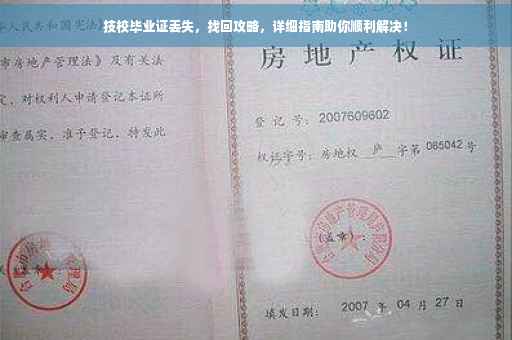 技校毕业证丢失，找回攻略，详细指南助你顺利解决！
人民共和国宪法》
市房地产管理法》及有关法
定，对权利人申请登记本证所
审查属实，准予登记，特发此
房地产权证
登记号：2007609602
权证字号：房地权 庐 字第 065042 号
(盖章)：
填发日期：2007 年 04 月 27 日